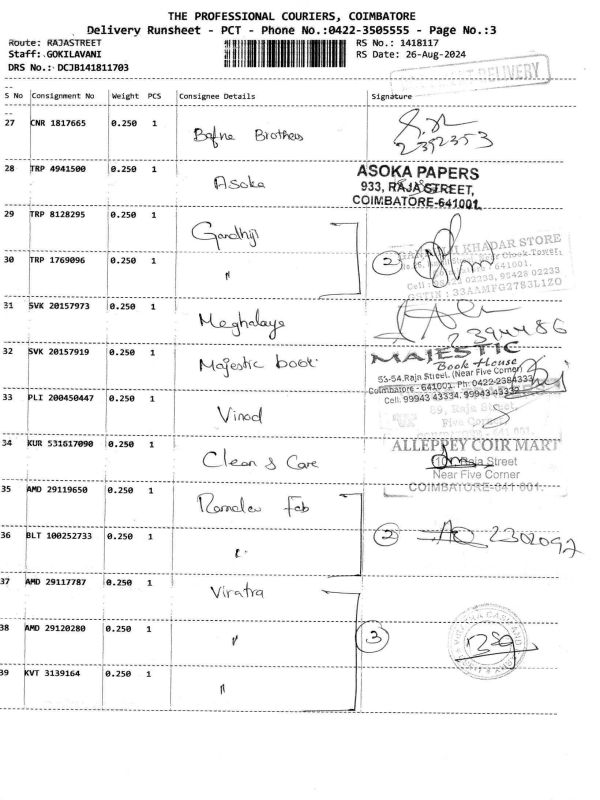 THE PROFESSIONAL COURIERS, COIMBATORE
Delivery Runsheet - PCT - Phone No.:0422-3505555 - Page No.:3
Route: RAJASTREET RS No.: 1418117
Staff: GOKILAVANI RS Date: 26-Aug-2024
DRS No.: DCJB141811703
DELIVERY
S No Consignment No Weight PCS Consignee Details Signature
27 CNR 1817665 0.250 1 Bafna Brothers
2392353
28 TRP 4941500 0.250 1 Asoka
ASOKA PAPERS
933, RAJA STREET,
COIMBATORE-641001.
29 TRP 8128295 0.250 1 Gandhiji
KHADAR STORE
Clock Tower,
641001.
30 TRP 1769096 0.250 1 " 2
Cell: 02233, 95428 02233
GSTIN : 33AAMFG2783L1ZO
31 SVK 20157973 0.250 1 Meghalaya
2394486
32 SVK 20157919 0.250 1 Majestic book
MAJESTIC
Book House
53-54,Raja Street, (Near Five Corner)
Coimbatore - 641001. Ph: 0422-2384333
Cell: 99943 43334, 99943 43332
33 PLI 200450447 0.250 1 Vinod
89, Raja Street,
Five Corner
34 KUR 531617090 0.250 1 Clean & Care
ALLEPPEY COIR MART
Raja Street
Near Five Corner
COIMBATORE-641 001.
35 AMD 29119650 0.250 1 Ramdev Fab
36 BLT 100252733 0.250 1 " 2 2302092
37 AMD 29117787 0.250 1 Viratra
38 AMD 29120280 0.250 1 " 3
39 KVT 3139164 0.250 1 "